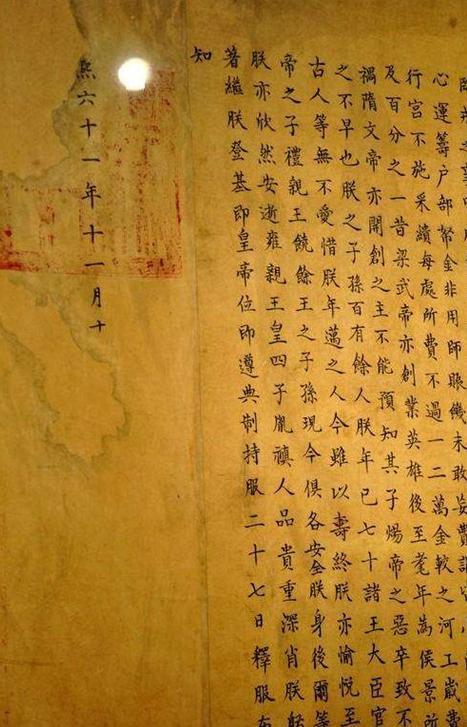 心運籌户部帑金非用師賑饑未敢妄費
行宮不施采繢每處所費不過一二萬金較之河工歲費
及百分之一昔梁武帝亦創業英雄後至耄年為侯景所
禍隋文帝亦開創之主不能預知其子煬帝之惡卒致不
之不早也朕之子孫百有餘人朕年已七十諸王大臣官
古人等無不愛惜朕年邁之人今雖以壽終朕亦愉悅至
帝之子禮親王饒餘王之子孫現今俱各安全朕身後爾等
朕亦欣然安逝雍親王皇四子胤禛人品貴重深肖朕躬
著繼朕登基即皇帝位即遵典制持服二十七日釋服布
知
熙六十一年十一月十